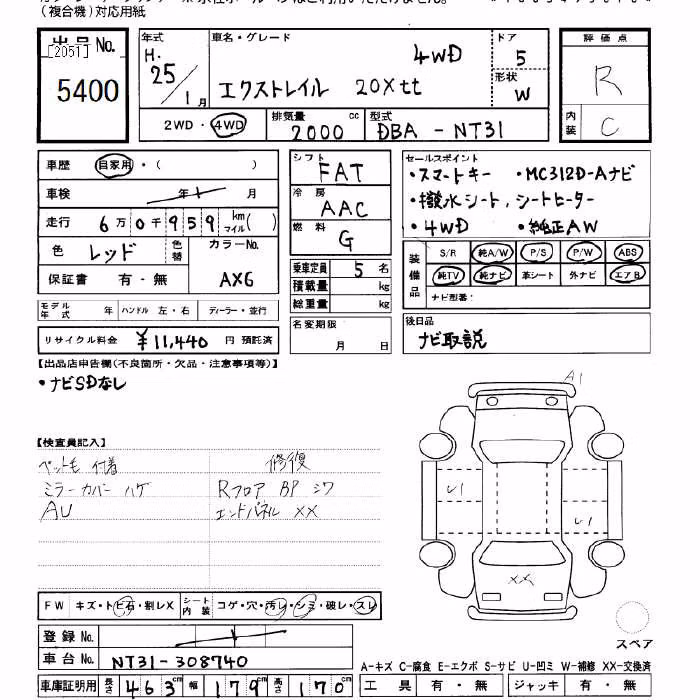 (複合機)対応用紙
出品No.
[2051]
5400
年式 車名・グレード ドア 評価点
H. 4WD 5 R
25/1月 エクストレイル 20Xtt 形状 W
2WD・4WD 排気量 2000 cc 型式 DBA - NT31 内装 C
車歴 自家用・( )
車検 年 月
走行 6万0千959 km マイル( )
色 レッド 色替 カラーNo.
保証書 有・無 AX6
モデル年式 年 ハンドル 左・右 ディーラー・並行
リサイクル料金 ¥11,440 円 預託済
シフト FAT
冷房 AAC
燃料 G
乗車定員 5 名
積載量 kg
総重量 kg
名変期限 月 日
セールスポイント
・スマートキー ・MC312D-Aナビ
・撥水シート,シートヒーター
・4WD ・純正AW
装備品 S/R 純A/W P/S P/W ABS
純TV 純ナビ 革シート 外ナビ エアB
ナビ型番:
後日品
ナビ取説
【出品店申告欄(不良箇所・欠品・注意事項等)】
・ナビSDなし
【検査員記入】
ペット毛 付着 修復
ミラーカバー ハゲ Rフロア BP シワ
AU エンドパネル XX
A1
XX
スペア
FW キズ・トビ石・割レX シート内装 コゲ・穴・汚レ・シミ・破レ・スレ
登録No.
車台No. NT31-308740
車庫証明用 長さ 463cm 幅 179cm 高さ 170cm
A-キズ C-腐食 E-エクボ S-サビ U-凹ミ W-補修 XX-交換済
工具 有・無 ジャッキ 有・無